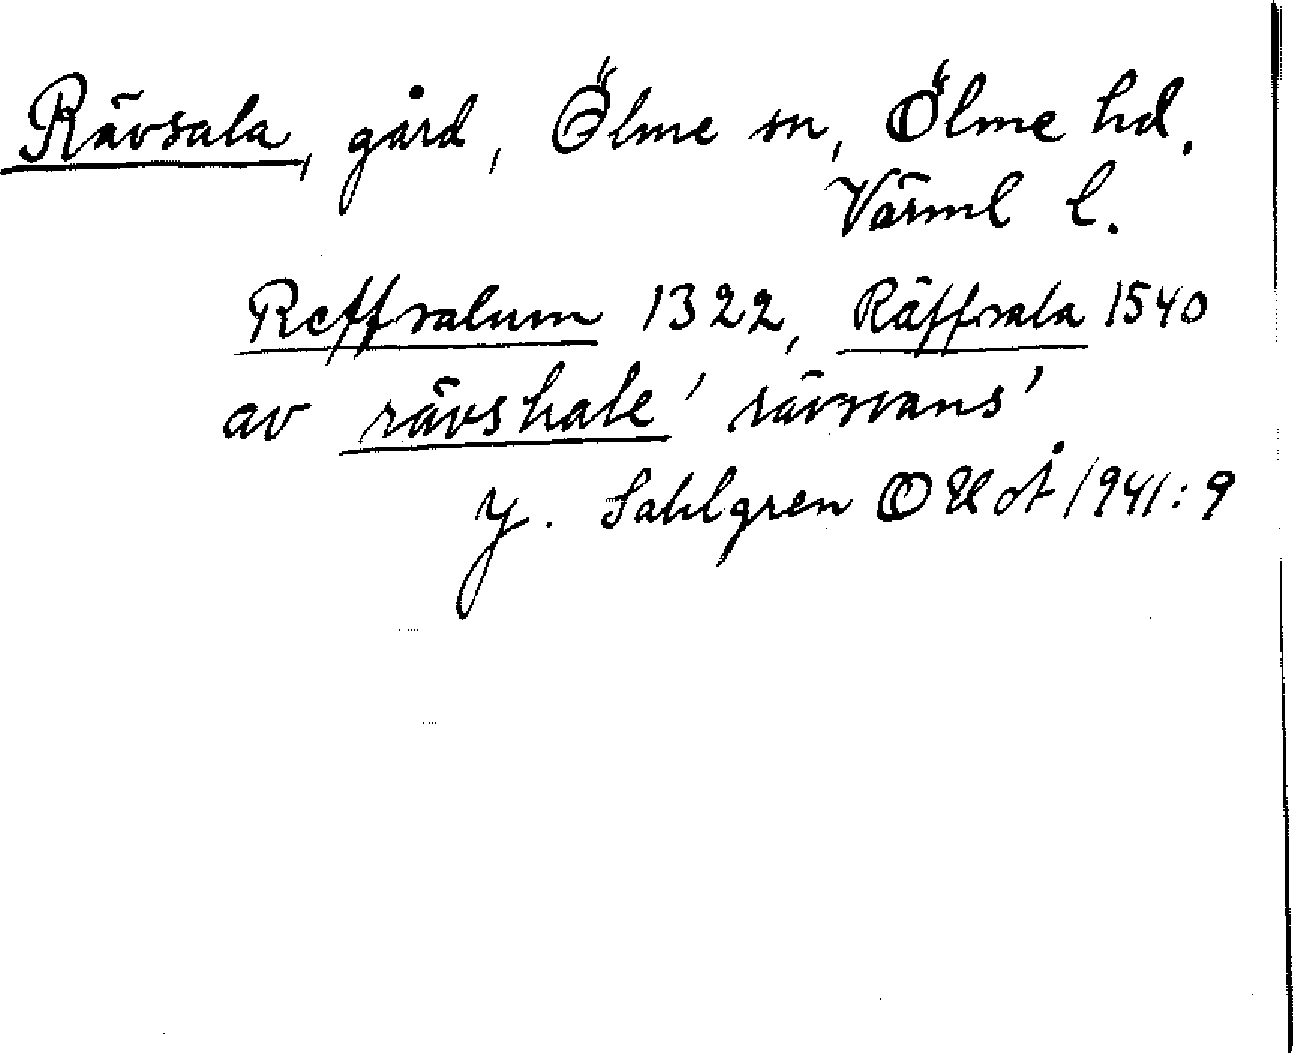 Rävsala, gård, Ölme sn, Ölme hd.
Värml l.
Reffsalum 1322, Räffsala 1540
av rävshale 'rävsvans'
J. Sahlgren OUoÅ 1941: 9